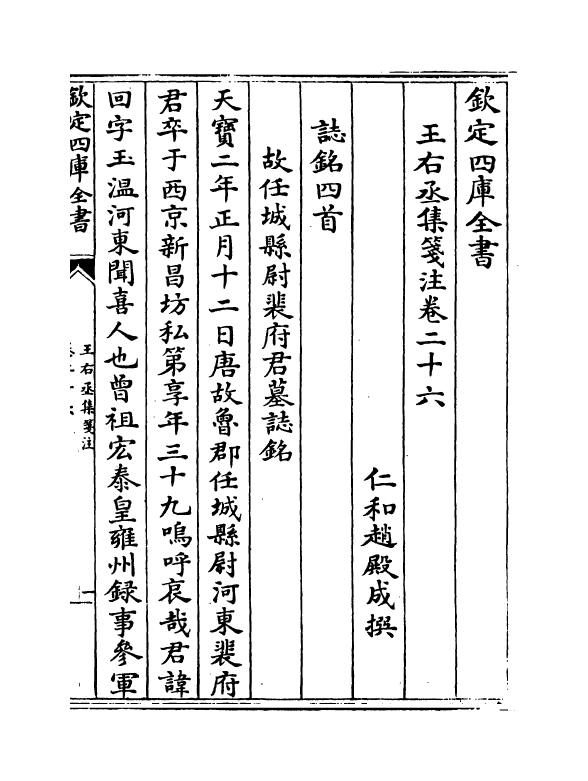 欽定四庫全書
王右丞集箋注卷二十六
仁和趙殿成撰
誌銘四首
故任城縣尉裴府君墓誌銘
天寶二年正月十二日唐故魯郡任城縣尉河東裴府
君卒于西京新昌坊私第享年三十九嗚呼哀哉君諱
回字玉溫河東聞喜人也曾祖宏泰皇雍州録事參軍
欽定四庫全書
王右丞集箋注
一